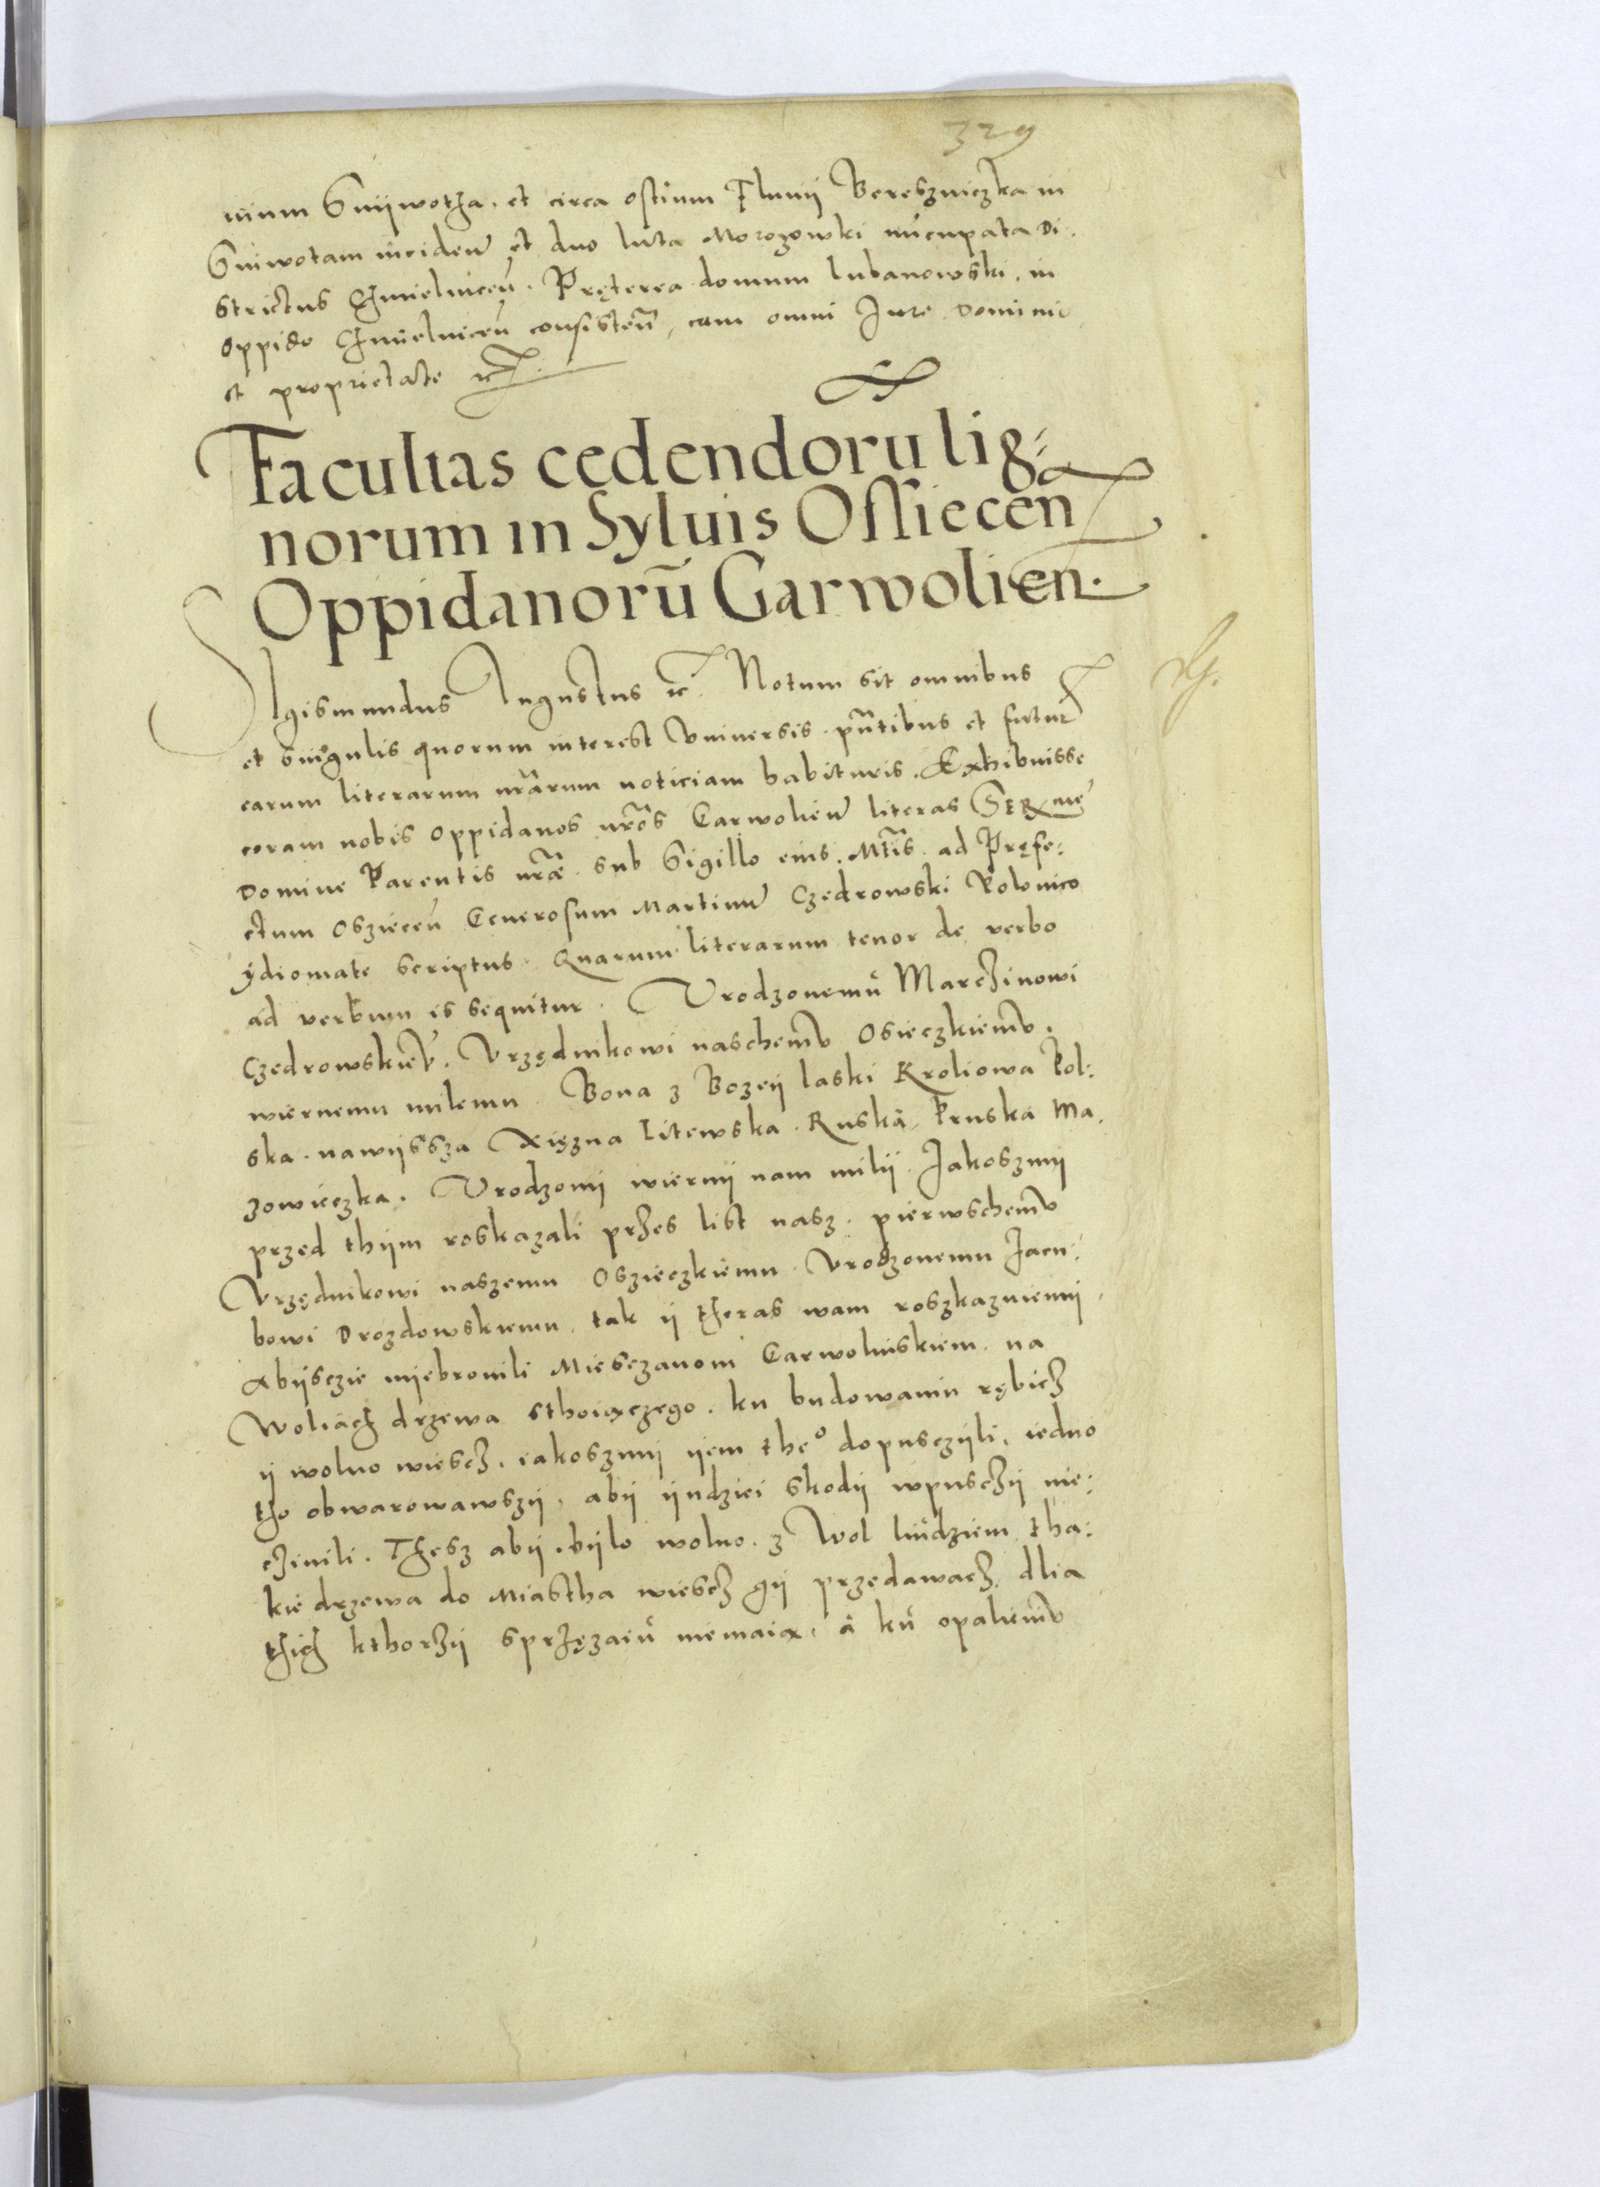 329
uium Snijwotha, et circa ostium Fluuij Bereszniczka in
Sniwotam inciden̄ et duo luta Morozowki nūcupata Di,
strictus Chmielnicen̄. Pręterea domum lubanowski, in
oppido Chmielnicen̄ consisten̄, cum omni Jure Dominio
et proprietate ꝛc̄.
Facultas cedendorū lig⸗
norum in Syluis Ossiecen̄
Oppidanorū Garwolien.
SIgismundus Augustus ꝛc̄. Notum sit omnibus
et singulis quorum interest Vniuersis. pn̄tibus et futur̄
earum literarum nr̄arum noticiam habituris. Exhibuisse
coram nobis oppidanos nr̄os Garwolien̄ literas Ser̄mę
Domine Parentis nr̄æ. sub Sigillo eius. Mt̄is. ad Pręfe:
ctum Osziecen̄ Generosum Martinū Czedrowski Polonico
ydiomate scriptus. Quarum literarum tenor de verbo
ad verbum is sequitur. Vrodzonemu Marczinowi
Czedrowskiem̄V. Vrzędnikowi naschem̄V Osieczkiem̄V.
wiernemu milemu. Bona z Bozeij laski Kroliowa Pol:
ska. nawijssza Xiężna Litewska. Ruska, Pruska Ma,
zowieczka. Vrodzonij wiernij nam milij. Jakoszmij
przed thijm roskazali przes list nasz. pierwschem̄V
Vrzędnikowi naszemu Oszieczkiemu. Vrodzonemu Jacu:
bowi Drozdowskiemu, tak ij theras wam roszkazuiemij,
Abijsczie niebronili Miesczanom Garwolinskiem. na
Woliach drzewa sthoiączego. ku budowaniu rębicz
ij wolno wiescz, iakoszmij ijem thęo dopusczijli, iedno
tho obwarowawszij, abij ijndziei skodij wpusczij nie:
czinili. Thesz abij.bijlo wolno. z Wol ludziem tha:
kie drzewa do Miastha wiescz gij przedawacz. dlia
thich kthorzij sprzęzaiu niemaią, a ku opaliem̄V